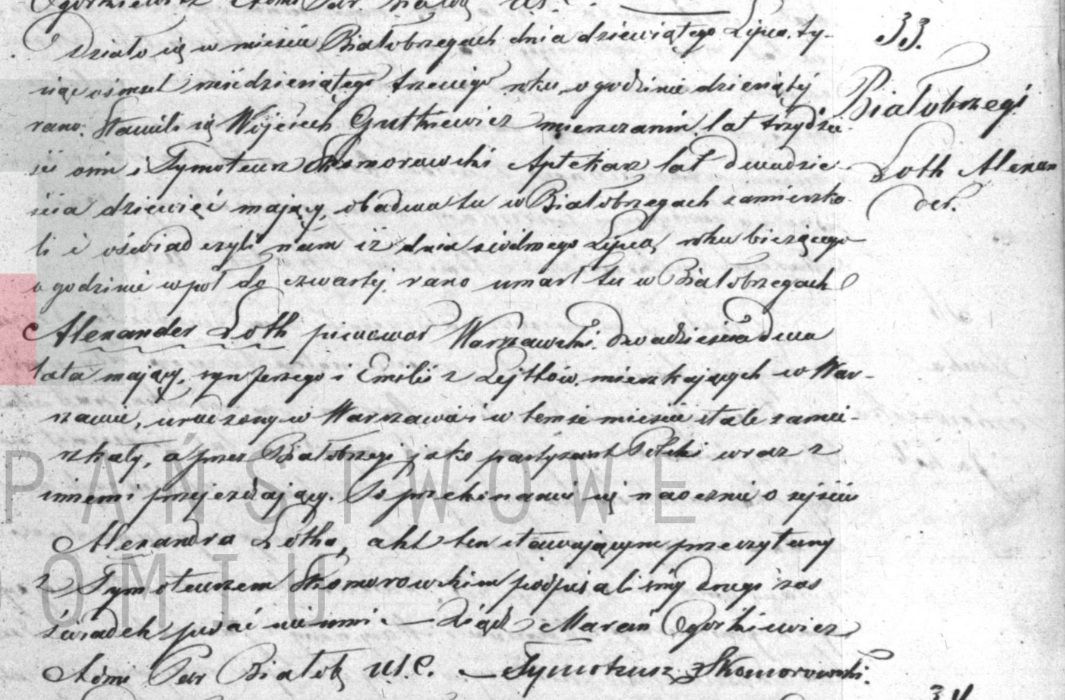 Ogorkiewicz Admi Par Białob USC.
Działo się w mieście Białobrzegach dnia dziewiątego Lipca, ty-
siąc ośmset sześdziesiątego trzeciego roku, o godzinie dziewiąty
rano. Stawili się Wojciech Gutkiewicz mieszczanin, lat trzydzie-
ści ośm i Tymoteusz Skomorowski Aptekarz lat dwadzie-
ścia dziewięć mający, obadwa tu w Białobrzegach zamieszka-
li i oświadczyli nam iż dnia siódmego Lipca, roku bieżącego
o godzinie wpół do czwarty, rano umarł tu w Białobrzegach
Alexander Loth piwowar Warszawski, dwadzieścia dwa
lata mający, syn Jerzego i Emilii z Lejtlów, mieszkających w War-
szawie, urodzony w Warszawie i w temże mieście stale zamie-
szkały, a przez Białobrzegi jako partyzant Polski wraz z
innemi przejeżdżający. Po przekonaniu się naocznie o zejściu
Alexandra Lotha, akt ten stawającym przeczytany
z Tymoteuszem Skomorowskim podpisaliśmy drugi zaś
świadek pisać nieumi. – Xiądz Marcin Ogórkiewicz
Admi Par Białob USC. – Tymoteusz Skomorowski.
33.
Białobrzegi
Loth Alexan
der.
34
PAŃSTWOWE
DOMIU